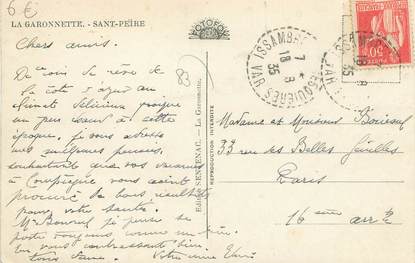 6 €
LA GARONNETTE. - SANT-PEÏRE
Chers amis.
De ce coin de rêve de
la côte d'azur au
climat délicieux presque
un peu chaud à cette
époque, je vous adresse
mes meilleures pensées,
souhaitant que vos vacances
à Compiègne vous aient
procuré de bons résultats
pour votre santé.
Mr Bonneuil je pense se
porte toujours comme un
En vous embrassant bien
tous deux. Votre amie
83
PHOTOFOX
Editions SENNEVAC. - La Garonnette.
REPRODUCTION INTERDITE
ISSAMBRES
VAR
7
18 8
35
50
Madame et Monsieur
33 rue des Belles Feuilles
Paris
16 ème arrt